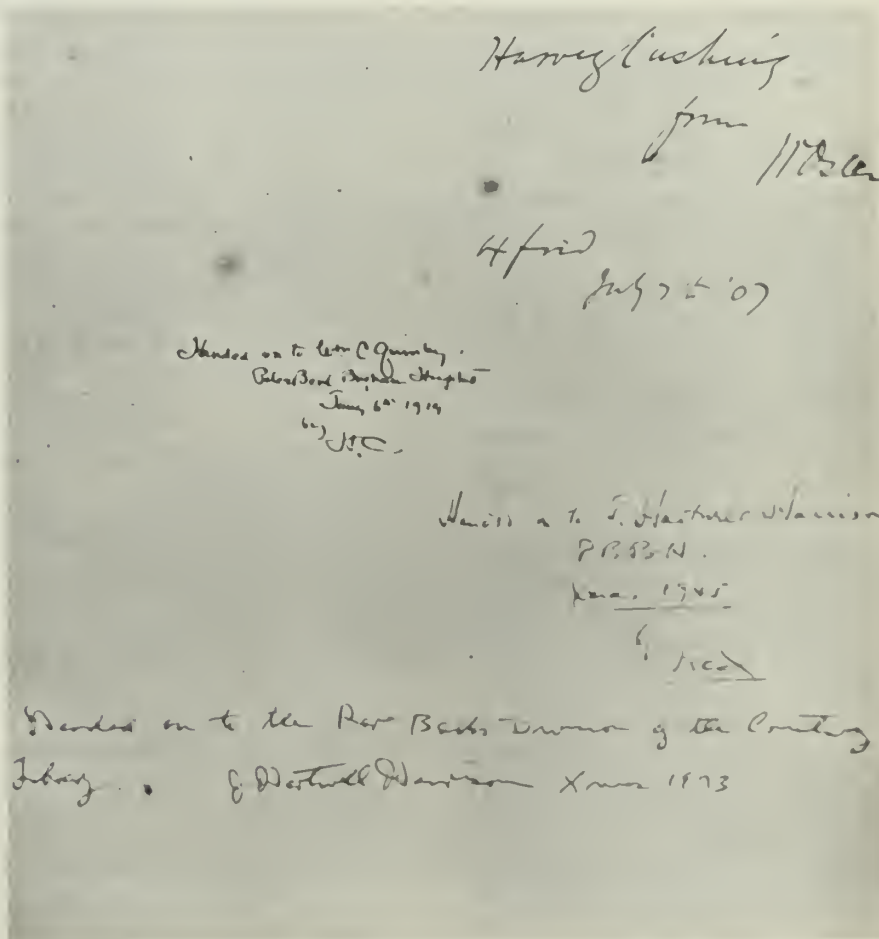 Harvey Cushing
from
W Osler
Oxford
July 7th '07
Handed on to Wm C Quinby.
Peter Bent Brigham Hospital
Jany 6th 1919
by H.C.
Handed on to J. Hartwell Harrison
P.B.B.H.
Xmas. 1945
by
WCQ
Handed on to the Rare Books Division of the Countway
Library. J Hartwell Harrison Xmas 1973